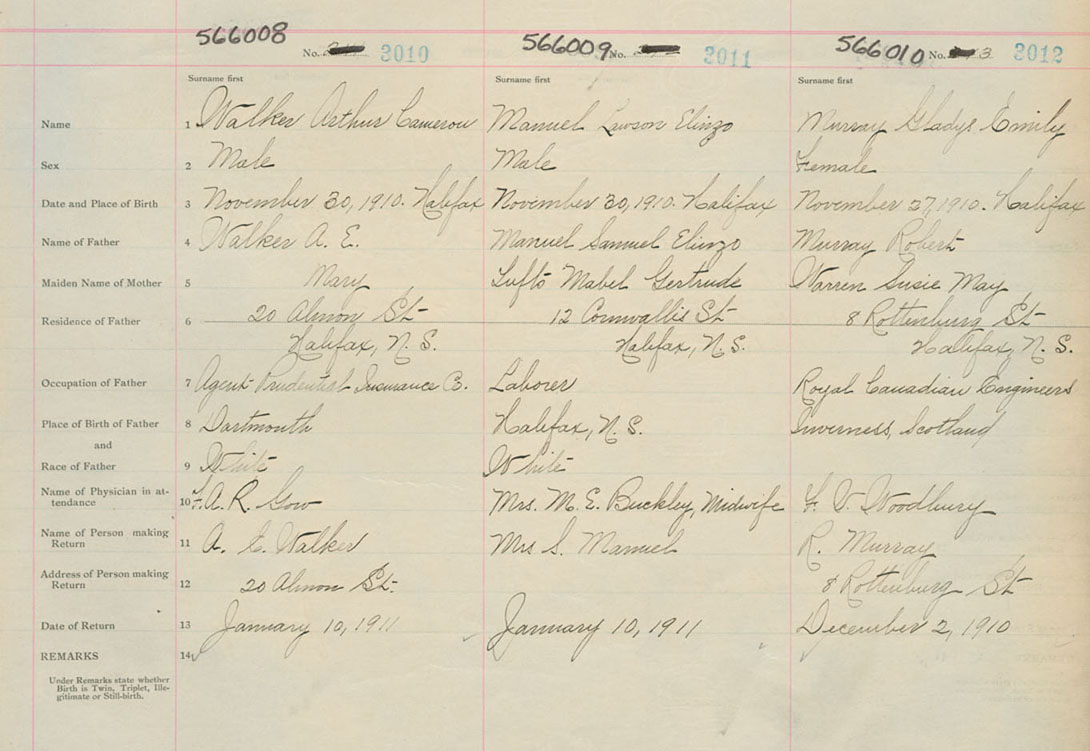 566008 No. 3010 566009 No. 3011 566010 No. 3 3012
Surname first Surname first Surname first
Name 1 Walker Arthur Cameron Manuel Lawson Elinzo Murray Gladys Emily
Sex 2 Male Male Female
Date and Place of Birth 3 November 30, 1910. Halifax November 30, 1910. Halifax November 27, 1910. Halifax
Name of Father 4 Walker A. E. Manuel Samuel Elinzo Murray Robert
Maiden Name of Mother 5 Mary Mabel Gertrude Warren Susie May
Residence of Father 6 20 Almon St 12 Cornwallis St 8 Rottenburg St
Halifax, N. S. Halifax, N.S. Halifax, N. S.
Occupation of Father 7 Agent Prudential Insurance Co. Laborer Royal Canadian Engineers
Place of Birth of Father 8 Dartmouth Halifax, N. S. Inverness, Scotland
and
Race of Father 9 White White
Name of Physician in at- 10 F. A. R. Gow Mrs. M. E. Buckley, Midwife F. V. Woodbury
tendance
Name of Person making 11 A. E. Walker Mrs S. Manuel R. Murray
Return
Address of Person making 12 20 Almon St. 8 Rottenburg St
Return
Date of Return 13 January 10, 1911 January 10, 1911 December 2, 1910
REMARKS 14
Under Remarks state whether
Birth is Twin, Triplet, Ille-
gitimate or Still-birth.